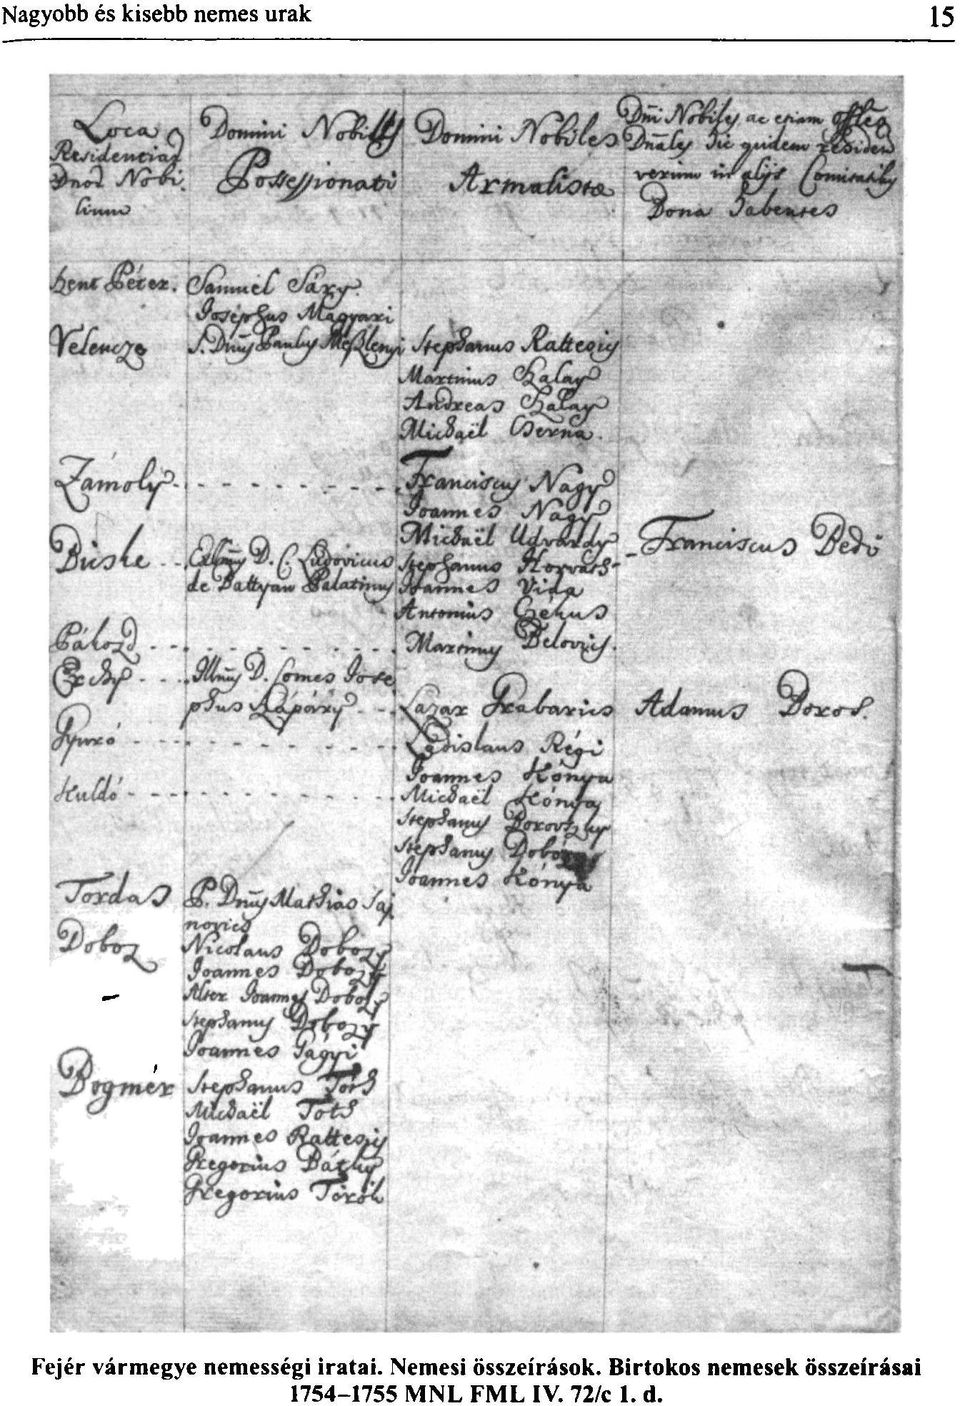 Nagyobb és kisebb nemes urak 15
Loca Residentiae Dnor Nobilium
Domini Nobiles Possessionati
Domini Nobiles Armalistae
Dni Nobiles ac etiam
Dnales hic quidem
verum in alijs Comitatibus
Bona habentes
Szent Péter. Samuel Sáry.
Josephus Magyari
Velencze S. Dnus Paulus Meszlenyi Stephanus Rattegij
Martinus Szalay
Andreas Szalay
Michaël Cserna.
Zámoly - - - - - - - Franciscus Nagy
Joannes Nagy
Michaël Udvardy
Bicske - - Exlmus D. C. Ludovicus Stephanus Horvath - Franciscus Bedi
de Battyan Palatinus Joannes Vida
Antonius
Pákozd - - - - - - - Martinus Belovics.
Ercsy - - - Illmus D. Comes Jose
phus Szápáry - - Lazar Grabarics Adamus Boros.
Gyuró - - - - - - - Ladislaus Régi
Joannes Kónya
Kuldó - - - - - - - Michaël Kónya
Stephanus Borovszky
Stephanus Dobozy
Joannes Kónya
Tordas P. Dnus Mathias Saj
novics
Doboz Nicolaus Dobozy
Joannes Dobozy
Alter Joannes Dobozy
Stephanus Dobozy
Joannes Ságyi
Bogmér Stephanus Tóth
Michaël Tóth
Joannes Rattegij
Gregorius Báthy
Gregorius Török
Fejér vármegye nemességi iratai. Nemesi összeírások. Birtokos nemesek összeírásai
1754–1755 MNL FML IV. 72/c 1. d.